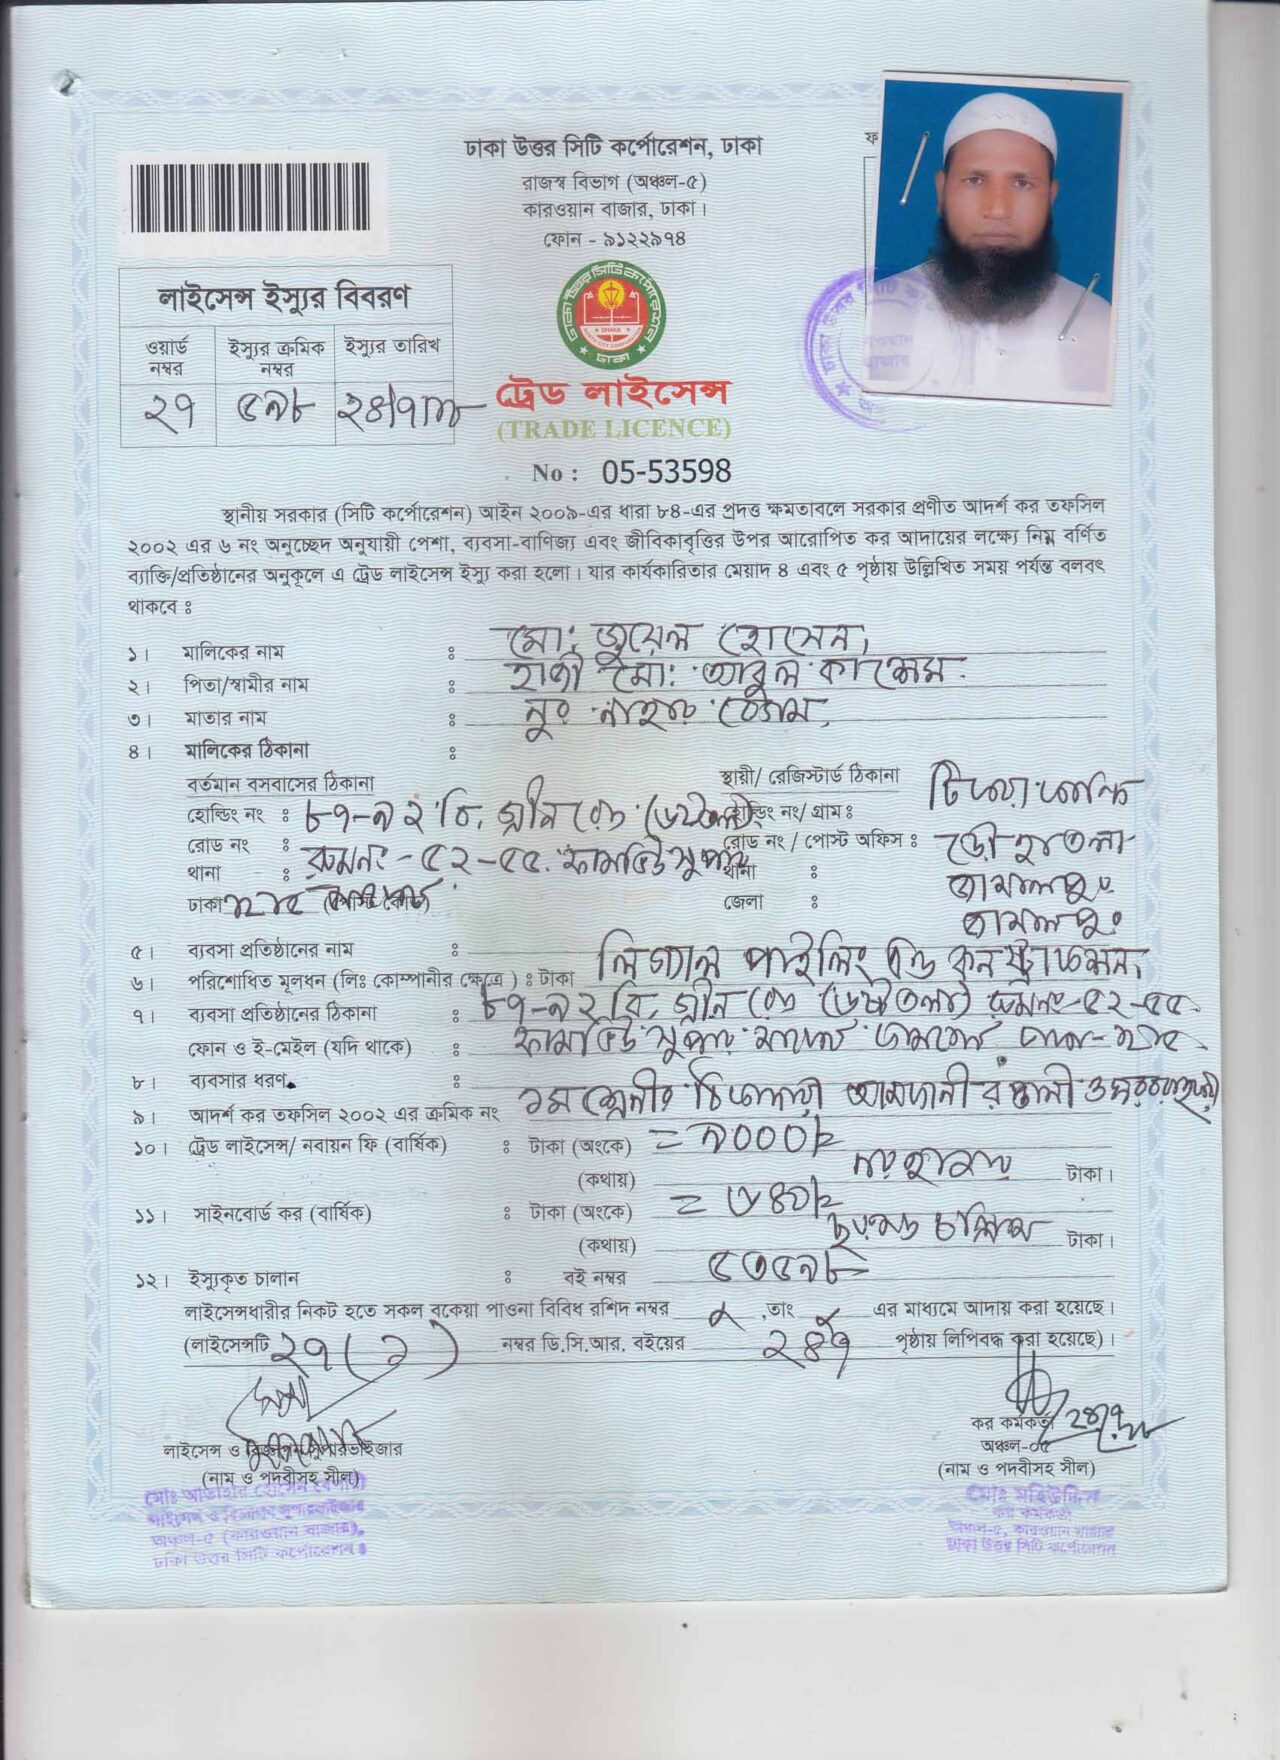 ঢাকা উত্তর সিটি কর্পোরেশন, ঢাকা
রাজস্ব বিভাগ (অঞ্চল-৫)
কারওয়ান বাজার, ঢাকা।
ফোন - ৯১২২৯৭৪
লাইসেন্স ইস্যুর বিবরণ
ওয়ার্ড নম্বর ইস্যুর ক্রমিক নম্বর ইস্যুর তারিখ
২৭ ৫৯৮
ঢাকা উত্তর সিটি কর্পোরেশন
DHAKA
ঢাকা
ট্রেড লাইসেন্স
(TRADE LICENCE)
No : 05-53598
স্থানীয় সরকার (সিটি কর্পোরেশন) আইন ২০০৯-এর ধারা ৮৪-এর প্রদত্ত ক্ষমতাবলে সরকার প্রণীত আদর্শ কর তফসিল
২০০২ এর ৬ নং অনুচ্ছেদ অনুযায়ী পেশা, ব্যবসা-বাণিজ্য এবং জীবিকাবৃত্তির উপর আরোপিত কর আদায়ের লক্ষ্যে নিম্ন বর্ণিত
ব্যাক্তি/প্রতিষ্ঠানের অনুকূলে এ ট্রেড লাইসেন্স ইস্যু করা হলো। যার কার্যকারিতার মেয়াদ ৪ এবং ৫ পৃষ্ঠায় উল্লিখিত সময় পর্যন্ত বলবৎ
থাকবে ঃ
১। মালিকের নাম ঃ মো: জুয়েল হোসেন,
২। পিতা/স্বামীর নাম ঃ হাজী মো: আবুল কাশেম
৩। মাতার নাম ঃ নুর নাহার বেগম,
৪। মালিকের ঠিকানা ঃ
বর্তমান বসবাসের ঠিকানা স্থায়ী/ রেজিস্টার্ড ঠিকানা
হোল্ডিং নং ঃ ৮৭-৯২ বি, গ্রীন রোড হোল্ডিং নং/ গ্রাম ঃ
রোড নং ঃ রুম নং - ৫২-৫৫. ফার্মভিউ সুপার রোড নং / পোস্ট অফিস ঃ
থানা ঃ থানা ঃ জামালপুর
ঢাকা (পোস্ট কোড) জেলা ঃ জামালপুর
৫। ব্যবসা প্রতিষ্ঠানের নাম ঃ পাইলিং এন্ড কনস্ট্রাকশন,
৬। পরিশোধিত মূলধন (লিঃ কোম্পানীর ক্ষেত্রে) ঃ টাকা
৭। ব্যবসা প্রতিষ্ঠানের ঠিকানা ঃ ৮৭-৯২ বি, গ্রীন রোড রুম নং-৫২-৫৫
ফোন ও ই-মেইল (যদি থাকে) ঃ ফার্মভিউ সুপার মার্কেট
৮। ব্যবসার ধরণ ঃ ১ম শ্রেনীর ঠিকাদারী আমদানী রপ্তানী ও সরবরাহকারী
৯। আদর্শ কর তফসিল ২০০২ এর ক্রমিক নং
১০। ট্রেড লাইসেন্স/ নবায়ন ফি (বার্ষিক) ঃ টাকা (অংকে) = ৯০০০/=
(কথায়) নয় হাজার টাকা।
১১। সাইনবোর্ড কর (বার্ষিক) ঃ টাকা (অংকে) = ৬৪০/=
(কথায়) ছয়শত চল্লিশ টাকা।
১২। ইস্যুকৃত চালান ঃ বই নম্বর ৫৩৫৯৮
লাইসেন্সধারীর নিকট হতে সকল বকেয়া পাওনা বিবিধ রশিদ নম্বর ,তাং এর মাধ্যমে আদায় করা হয়েছে।
(লাইসেন্সটি ২৭ (১) নম্বর ডি.সি.আর. বইয়ের পৃষ্ঠায় লিপিবদ্ধ করা হয়েছে)।
লাইসেন্স ও বিজ্ঞাপন সুপারভাইজার কর কর্মকর্তা
অঞ্চল-০৫
(নাম ও পদবীসহ সীল) (নাম ও পদবীসহ সীল)
লাইসেন্স ও বিজ্ঞাপন সুপারভাইজার
অঞ্চল-৫ (কারওয়ান বাজার)
ঢাকা উত্তর সিটি কর্পোরেশন।
মোঃ মহিউদ্দিন
কর কর্মকর্তা
অঞ্চল-৫, কারওয়ান বাজার
ঢাকা উত্তর সিটি কর্পোরেশন